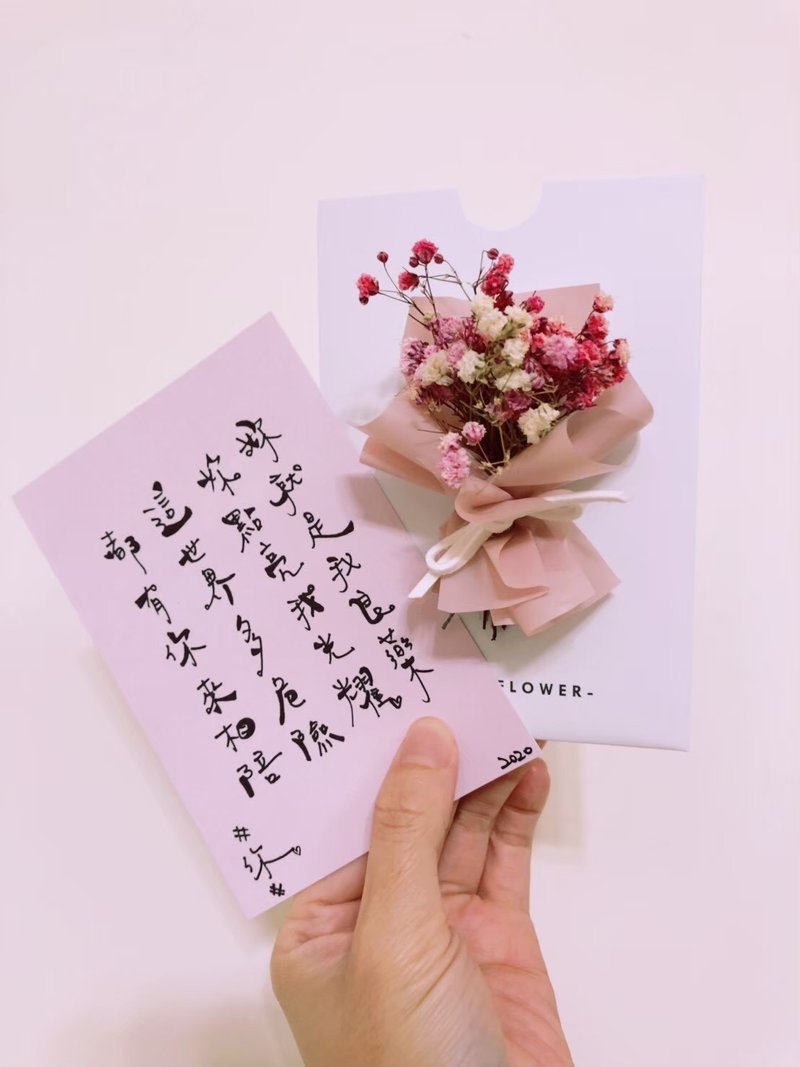 妳就是我良藥
妳點亮我光耀
這世界多危險
都有你來相陪
#你#
2020
FLOWER-